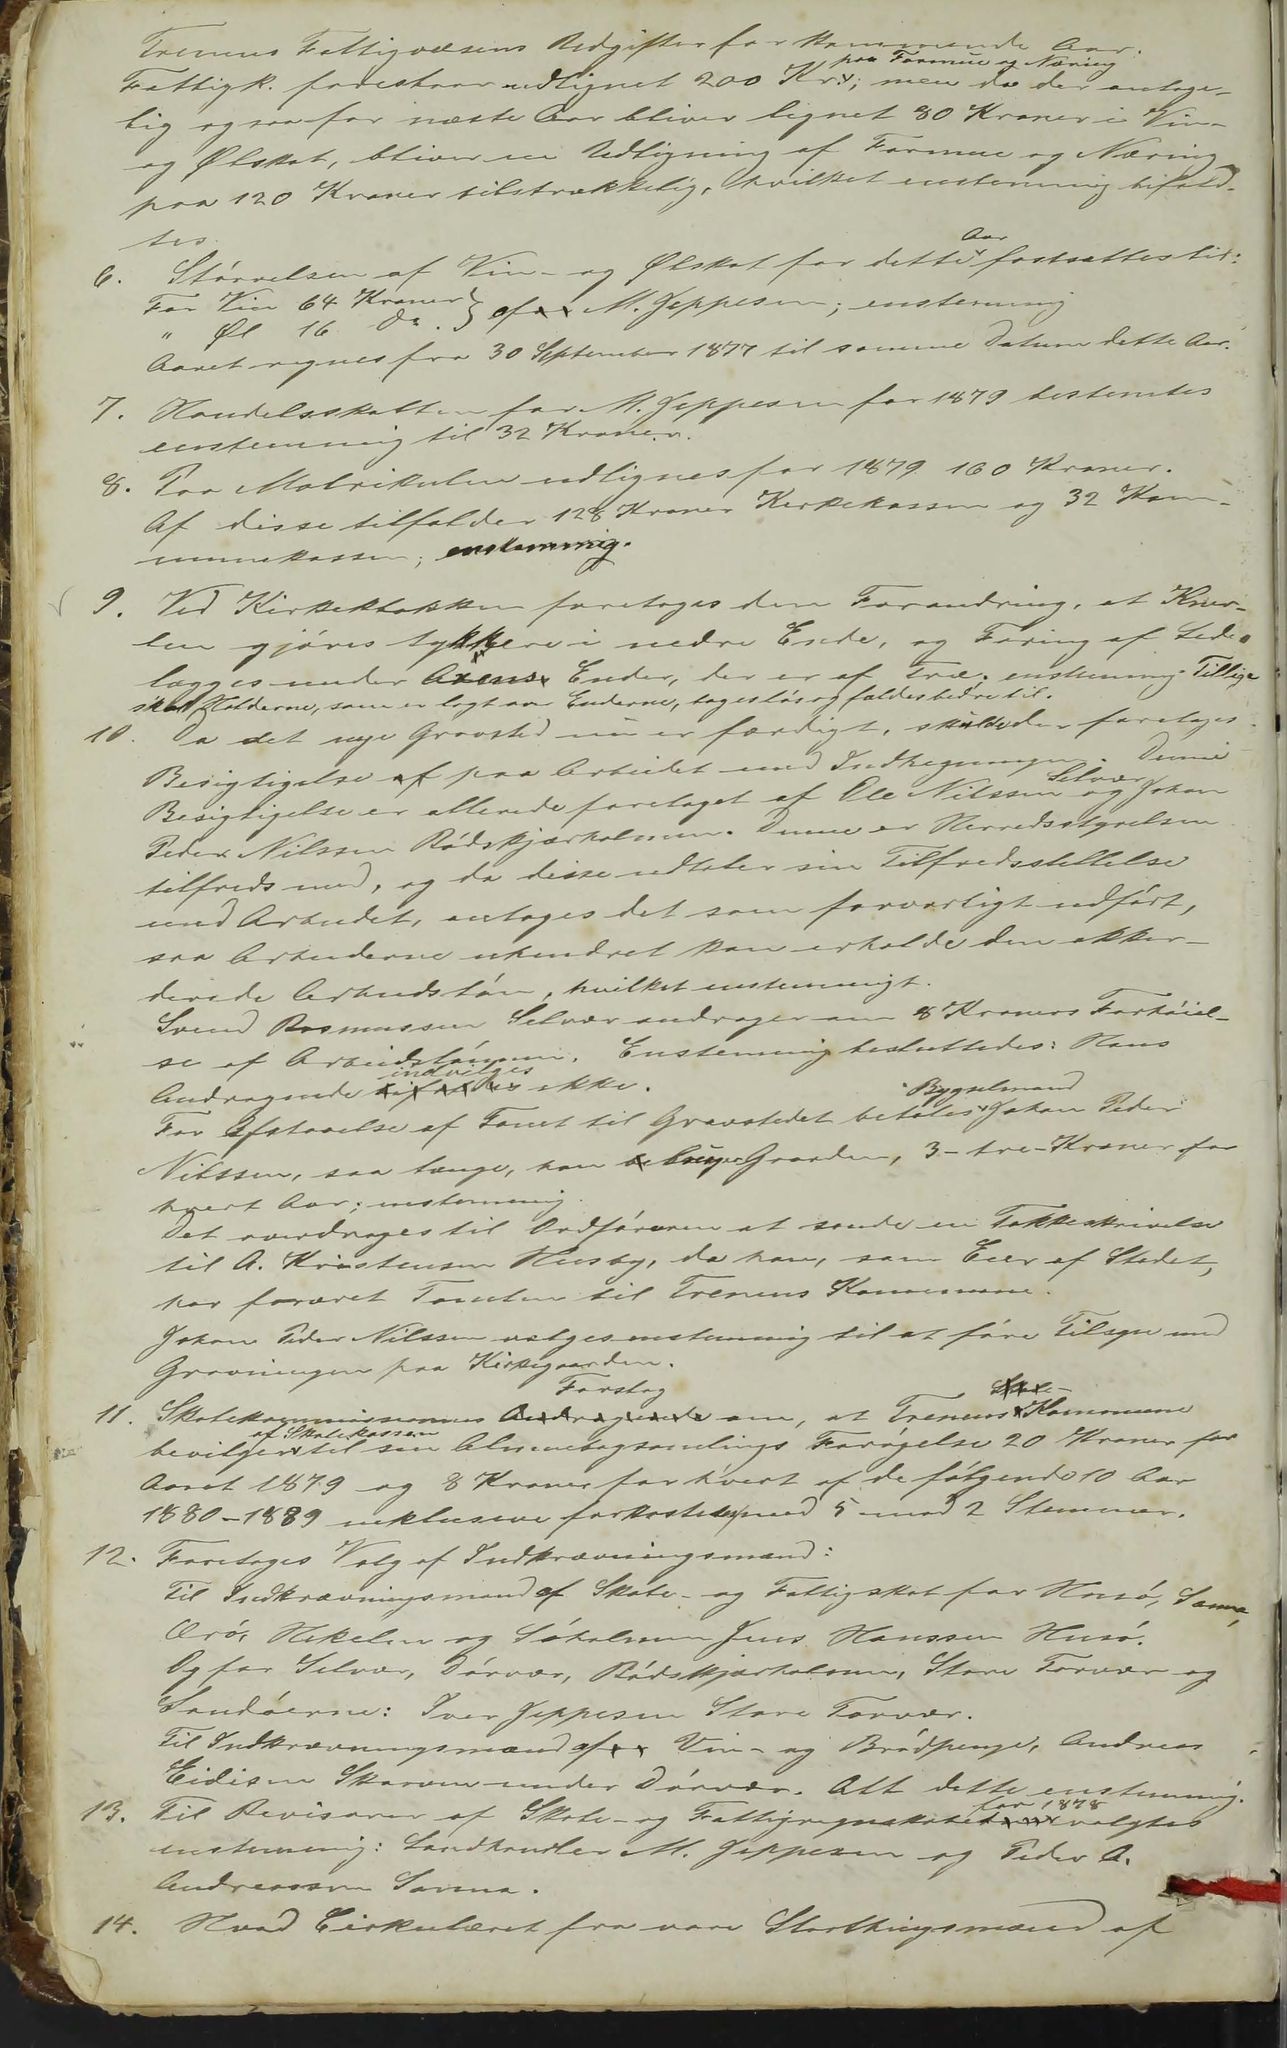 Trenens Fattigvæsens Udgifter for kommende Aar.
paa Formue og Næring
Fattigk. forestaar udlignet 200 Kr.; men da der antage-
lig ogsaa for næste Aar bliver lignet 80 Kroner i Vin-
og Ølskat, bliver en Udligning af Formue og Næring
paa 120 Kroner tilstrækkelig, hvilket enstemmig bifald-
tes.
Aar
6. Størrelsen af Vin- og Ølskat for dette fastsattes til:
For Vin 64 Kroner } af M. Jeppesen; enstemmig
" Øl 16 Do. }
Aaret regnes fra 30 September 1877 til samme Datum dette Aar.
7. Handelsskatten for M. Jeppesen for 1879 bestemtes
enstemmig til 32 Kroner.
8. Paa Matrikulen udlignes for 1879 160 Kroner.
Af disse tilfalder 128 Kroner Kirkekassen og 32 Kom-
munekassen; enstemmig.
9. Ved Kirkeklokken foretages den Forandring, at Knev-
len gjøres tykkere i nedre Ende, og Foring af Læder
lægges under Axens Ender, der er af Træ; enstemmig. Tillige
skal Holderne, som er lagt om Enderne, tages løs og faldes bedre til.
10. Da det nye Gravsted nu er færdigt, skulde der foretages
Besigtigelse af paa Arbeidet med Indhegningen. Denne
Selvær
Besigtigelse er allerede foretaget af Ole Nilssen og Johan
Peder Nilssen Rødskjærholmen. Denne er Herredsstyrelsen
tilfreds med, og da disse udtaler sin Tilfredsstillelse
med Arbeidet, antages det som forsvarligt udført,
saa Arbeiderne uhindret kan erholde den akkor-
derede Arbeidsløn, hvilket enstemmigt.
Svend Rasmussen Selvær andrager om 8 Kroners Forhøiel-
se af Arbeidslønnen. Enstemmig besluttedes: Hans
indvilges
Andragende bifaldes ikke.
Bygselmand
For Afstaaelse af Tomt til Gravstedet betales Johan Peder
Nilssen, saa længe, han bruger Gaarden, 3-tre-Kroner for
hvert Aar; enstemmig.
Det overdrages til Ordføreren at sende en Takkeskrivelse
til A. Kristensen Husby, da han, som Eier af Stedet,
har foræret Tomten til Trenens Kommune.
Johan Peder Nilssen vælges enstemmig til at føre Tilsyn med
Gravningen paa Kirkegaarden.
Forslag Skole-
11. Skolekommissionens Andragende om, at Trenens Kommune
af Skolekassen
bevilger til sin Almuebogsamlings Forøgelse 20 Kroner for
Aaret 1879 og 8 Kroner for hvert af de følgende 10 Aar
1880-1889 inklusive forkastedes med 5 mod 2 Stemmer.
12. Foretages Valg af Indkrævningsmænd:
Til Indkrævningsmand af Skole- og Fattigskat for Husø, Sanna,
Ørø, Hikelen og Søholmen Jens Hanssen Husø.
Og for Selvær, Dørvær, Rødskjærholmen, Store Torvær og
Sandøerne: Iver Jeppesen Store Torvær.
Til Indkrævningsmand af Vin- og Brødpenge, Andreas
Eidisen Skarven under Dørvær. Alt dette enstemmig.
for 1878
13. Til Revisorer af Skole- og Fattigregnskabet valgtes
enstemmig: Landhandler M. Jeppesen og Peder A.
Andreassen Sanna.
14. Hvad Cirkulæret fra vore Storthingsmænd af